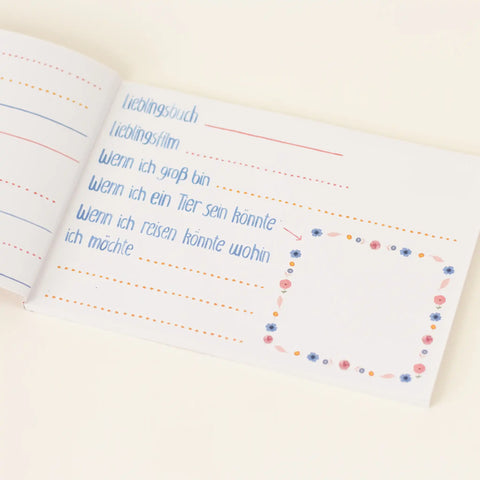 Lieblingsbuch
Lieblingsfilm
Wenn ich groß bin
Wenn ich ein Tier sein könnte
Wenn ich reisen könnte wohin
ich möchte